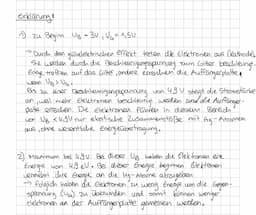 Erklärung:
1) zu Beginn U_B = 3V, U_G = 1,5V
→ Durch den glühelektrischen Effekt treten die Elektronen aus
Sie werden durch die Beschleunigungsspannung zum Gitter beschleunigt.
Einige treffen auf das Gitter, andere erreichen die Auffängerplatte,
wenn U_B > U_G.
Bis zu einer Beschleunigungsspannung von 4,9 V steigt die Stromstärke
an, weil mehr Elektronen beschleunigt werden und die Auffänger-
platte erreichen. Die Elektronen führen in diesem Bereich
von U_B < 4,9V nur elastische Zusammenstöße mit Hg-Atomen
aus, ohne wesentliche Energieübertragung.
2) Maximum bei 4,9V: Bei dieser U_B haben die Elektronen eine
Energie von 4,9 eV. Bei dieser Energie beginnen Elektronen
ihre Energie an die Hg-Atome abzugeben
→ Folglich haben die Elektronen zu wenig Energie um die Gegen-
spannung (U_G) zu überwinden und somit können weniger
Elektronen an der Auffängerplatte gemessen werden.